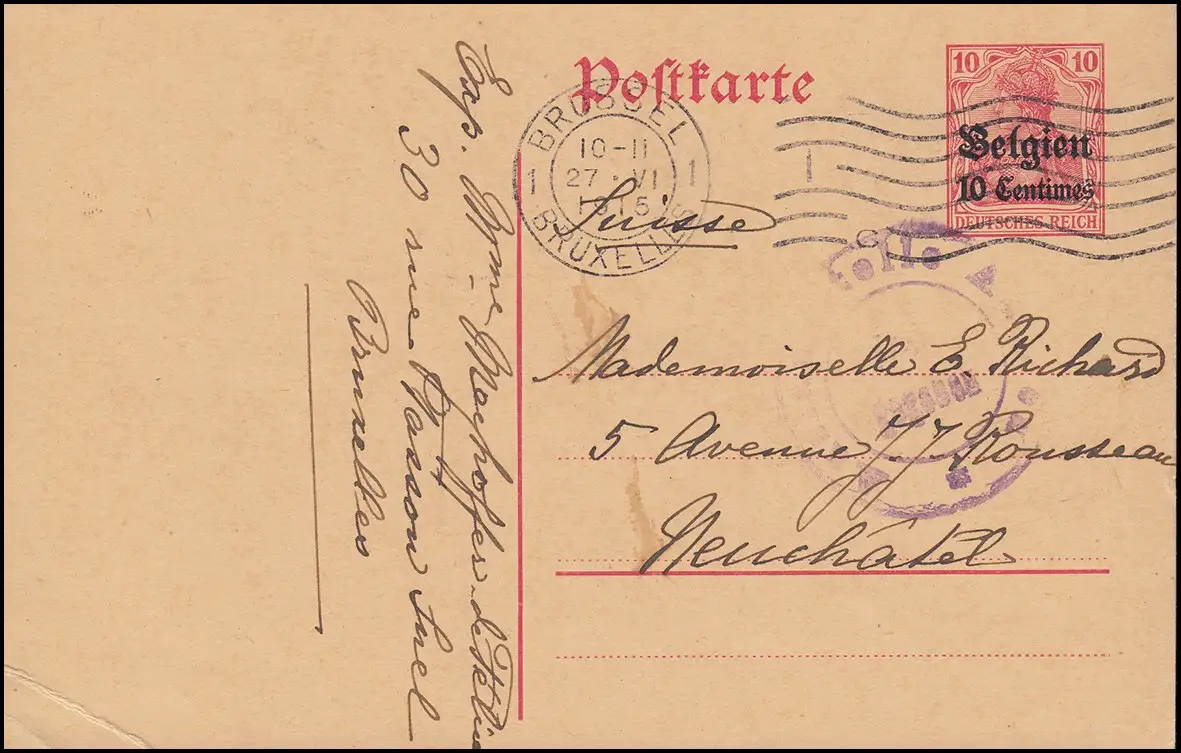 Postkarte
10 10
Belgien
10 Centimes
DEUTSCHES REICH
BRUSSEL
10-11
1 27·VI 1
1915
BRUXELLES
Suisse
Mademoiselle E Richard
5 Avenue J J Rousseau
Neuchâtel
Exp. Mme
30 rue Masson
Bruxelles